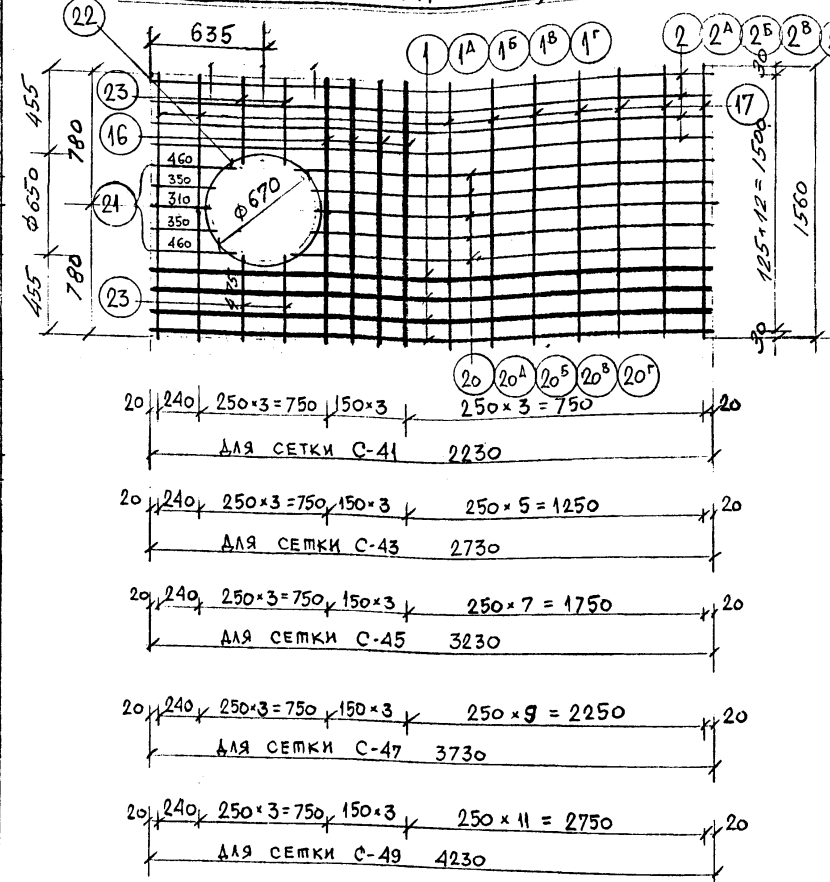 22
635
1 1А 1Б 1В 1Г
2 2А 2Б 2В
30
23
17
16
455
780
460
350
310
350
460
21
ф650
ф670
125×12=1500
1560
455
780
23
30
20 20А 20Б 20В 20Г
20 240 250×3=750 150×3 250×3=750 20
ДЛЯ СЕТКИ С-41 2230
20 240 250×3=750 150×3 250×5=1250 20
ДЛЯ СЕТКИ С-43 2730
20 240 250×3=750 150×3 250×7=1750 20
ДЛЯ СЕТКИ С-45 3230
20 240 250×3=750 150×3 250×9=2250 20
ДЛЯ СЕТКИ С-47 3730
20 240 250×3=750 150×3 250×11=2750 20
ДЛЯ СЕТКИ С-49 4230